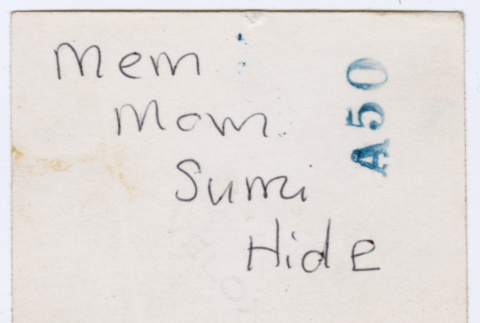 Mem
Mom
Sumi
Hide
A50